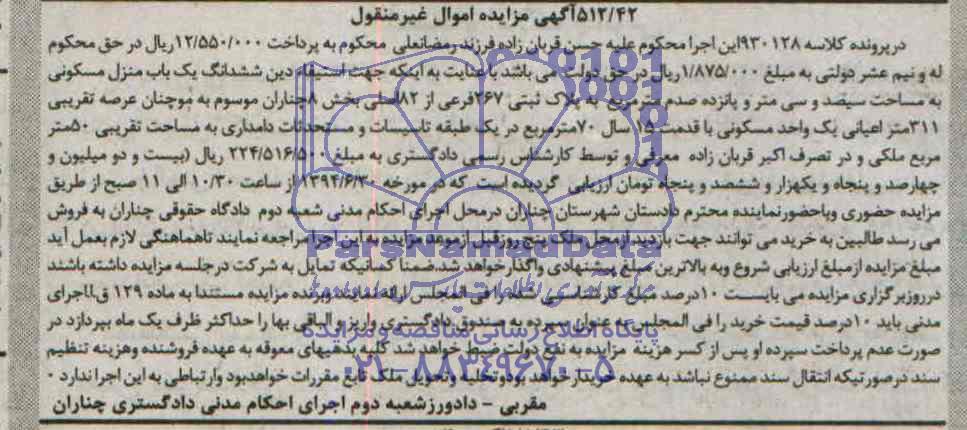 ۵۱۲/۴۲آگهی مزایده اموال غیرمنقول
درپرونده کلاسه ۹۳۰۱۲۸این اجرا محکوم علیه حسن قربان زاده فرزند رمضانعلی محکوم به پرداخت ۱۲/۵۵۰/۰۰۰ریال در حق محکوم
له و نیم عشر دولتی به مبلغ ۱/۸۷۵/۰۰۰ریال در حق دولت می باشد با عنایت به اینکه جهت استیفاء دین ششدانگ یک باب منزل مسکونی
به مساحت سیصد و سی متر و پانزده صدم مترمربع به پلاک ثبتی ۲۶۷فرعی از ۸۲اصلی بخش ۸چناران موسوم به موچنان عرصه تقریبی
۳۱۱متر اعیانی یک واحد مسکونی با قدمت ۱۵ سال ۷۰مترمربع در یک طبقه تاسیسات و مستحدثات دامداری به مساحت تقریبی ۵۰متر
مربع ملکی و در تصرف اکبر قربان زاده معرفی و توسط کارشناس رسمی دادگستری به مبلغ ۲۲۴/۵۱۶/۵۰۰ ریال (بیست و دو میلیون و
چهارصد و پنجاه و یکهزار و ششصد و پنجاه تومان ارزیابی گردیده است که در مورخه ۱۳۹۴/۶/۳۰ از ساعت ۱۰/۳۰ الی ۱۱ صبح از طریق
مزایده حضوری وباحضورنماینده محترم دادستان شهرستان چناران درمحل اجرای احکام مدنی شعبه دوم دادگاه حقوقی چناران به فروش
می رسد طالبین به خرید می توانند جهت بازدید ازمحل ملک پنج روزقبل ازموعد مزایده به این اجرا مراجعه نمایند تاهماهنگی لازم بعمل آید
مبلغ مزایده ازمبلغ ارزیابی شروع وبه بالاترین مبلغ پیشنهادی واگذارخواهد شد.ضمنا کسانیکه تمایل به شرکت درجلسه مزایده داشته باشند
درروزبرگزاری مزایده می بایست ۱۰درصد مبلغ کارشناسی شده را فی المجلس ارائه نمایند وبرنده مزایده مستندا به ماده ۱۲۹ ق.ااجرای
مدنی باید ۱۰درصد قیمت خرید را فی المجلس به عنوان سپرده به صندوق دادگستری واریز و الباقی بها را حداکثر ظرف یک ماه بپردازد در
صورت عدم پرداخت سپرده او پس از کسر هزینه مزایده به نفع دولت ضبط خواهد شد کلیه بدهیهای معوقه به عهده فروشنده وهزینه تنظیم
سند درصورتیکه انتقال سند ممنوع نباشد به عهده خریدارخواهد بودوتخلیه وتحویل ملک تابع مقررات خواهدبود وارتباطی به این اجرا ندارد ۰
مقربی – دادورزشعبه دوم اجرای احکام مدنی دادگستری چناران
ParsNamadData
پایگاه اطلاع رسانی مناقصه و مزایده
۰۲۱-۸۸۳۴۹۶۷۰-۵